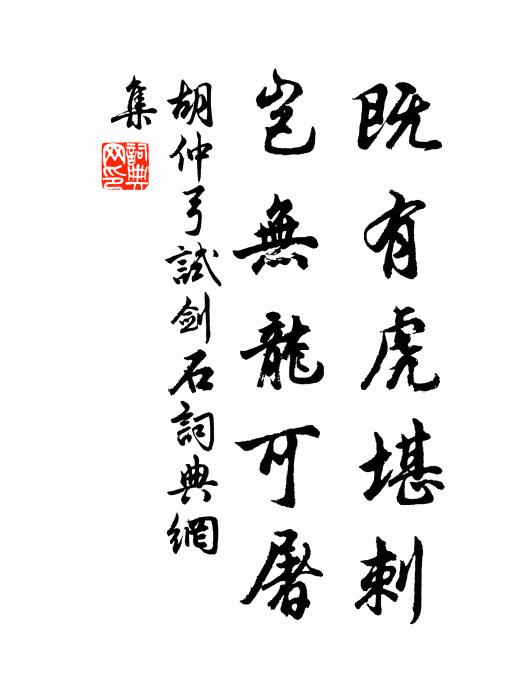 既有虎堪刺
岂無龍可屠
胡仲弓試劍石詞典網
集
詞典
网印